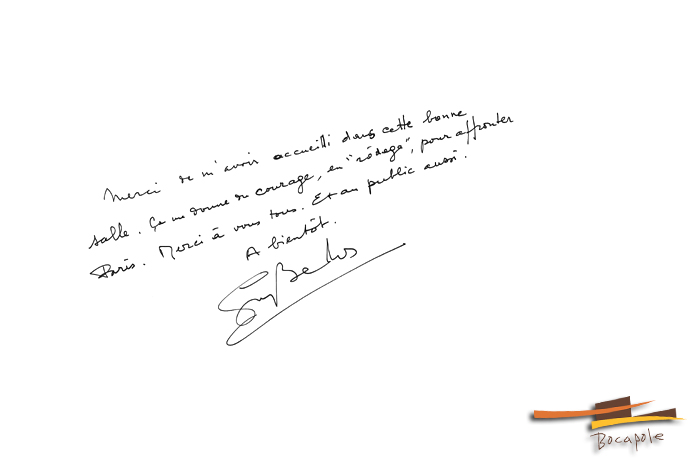 Merci de m'avoir accueilli dans cette bonne
salle. Ça me donne du courage, en "rôdage", pour affronter
Paris. Merci à vous tous. Et au public aussi.
A bientôt.
Guy Bedos
Bocapole